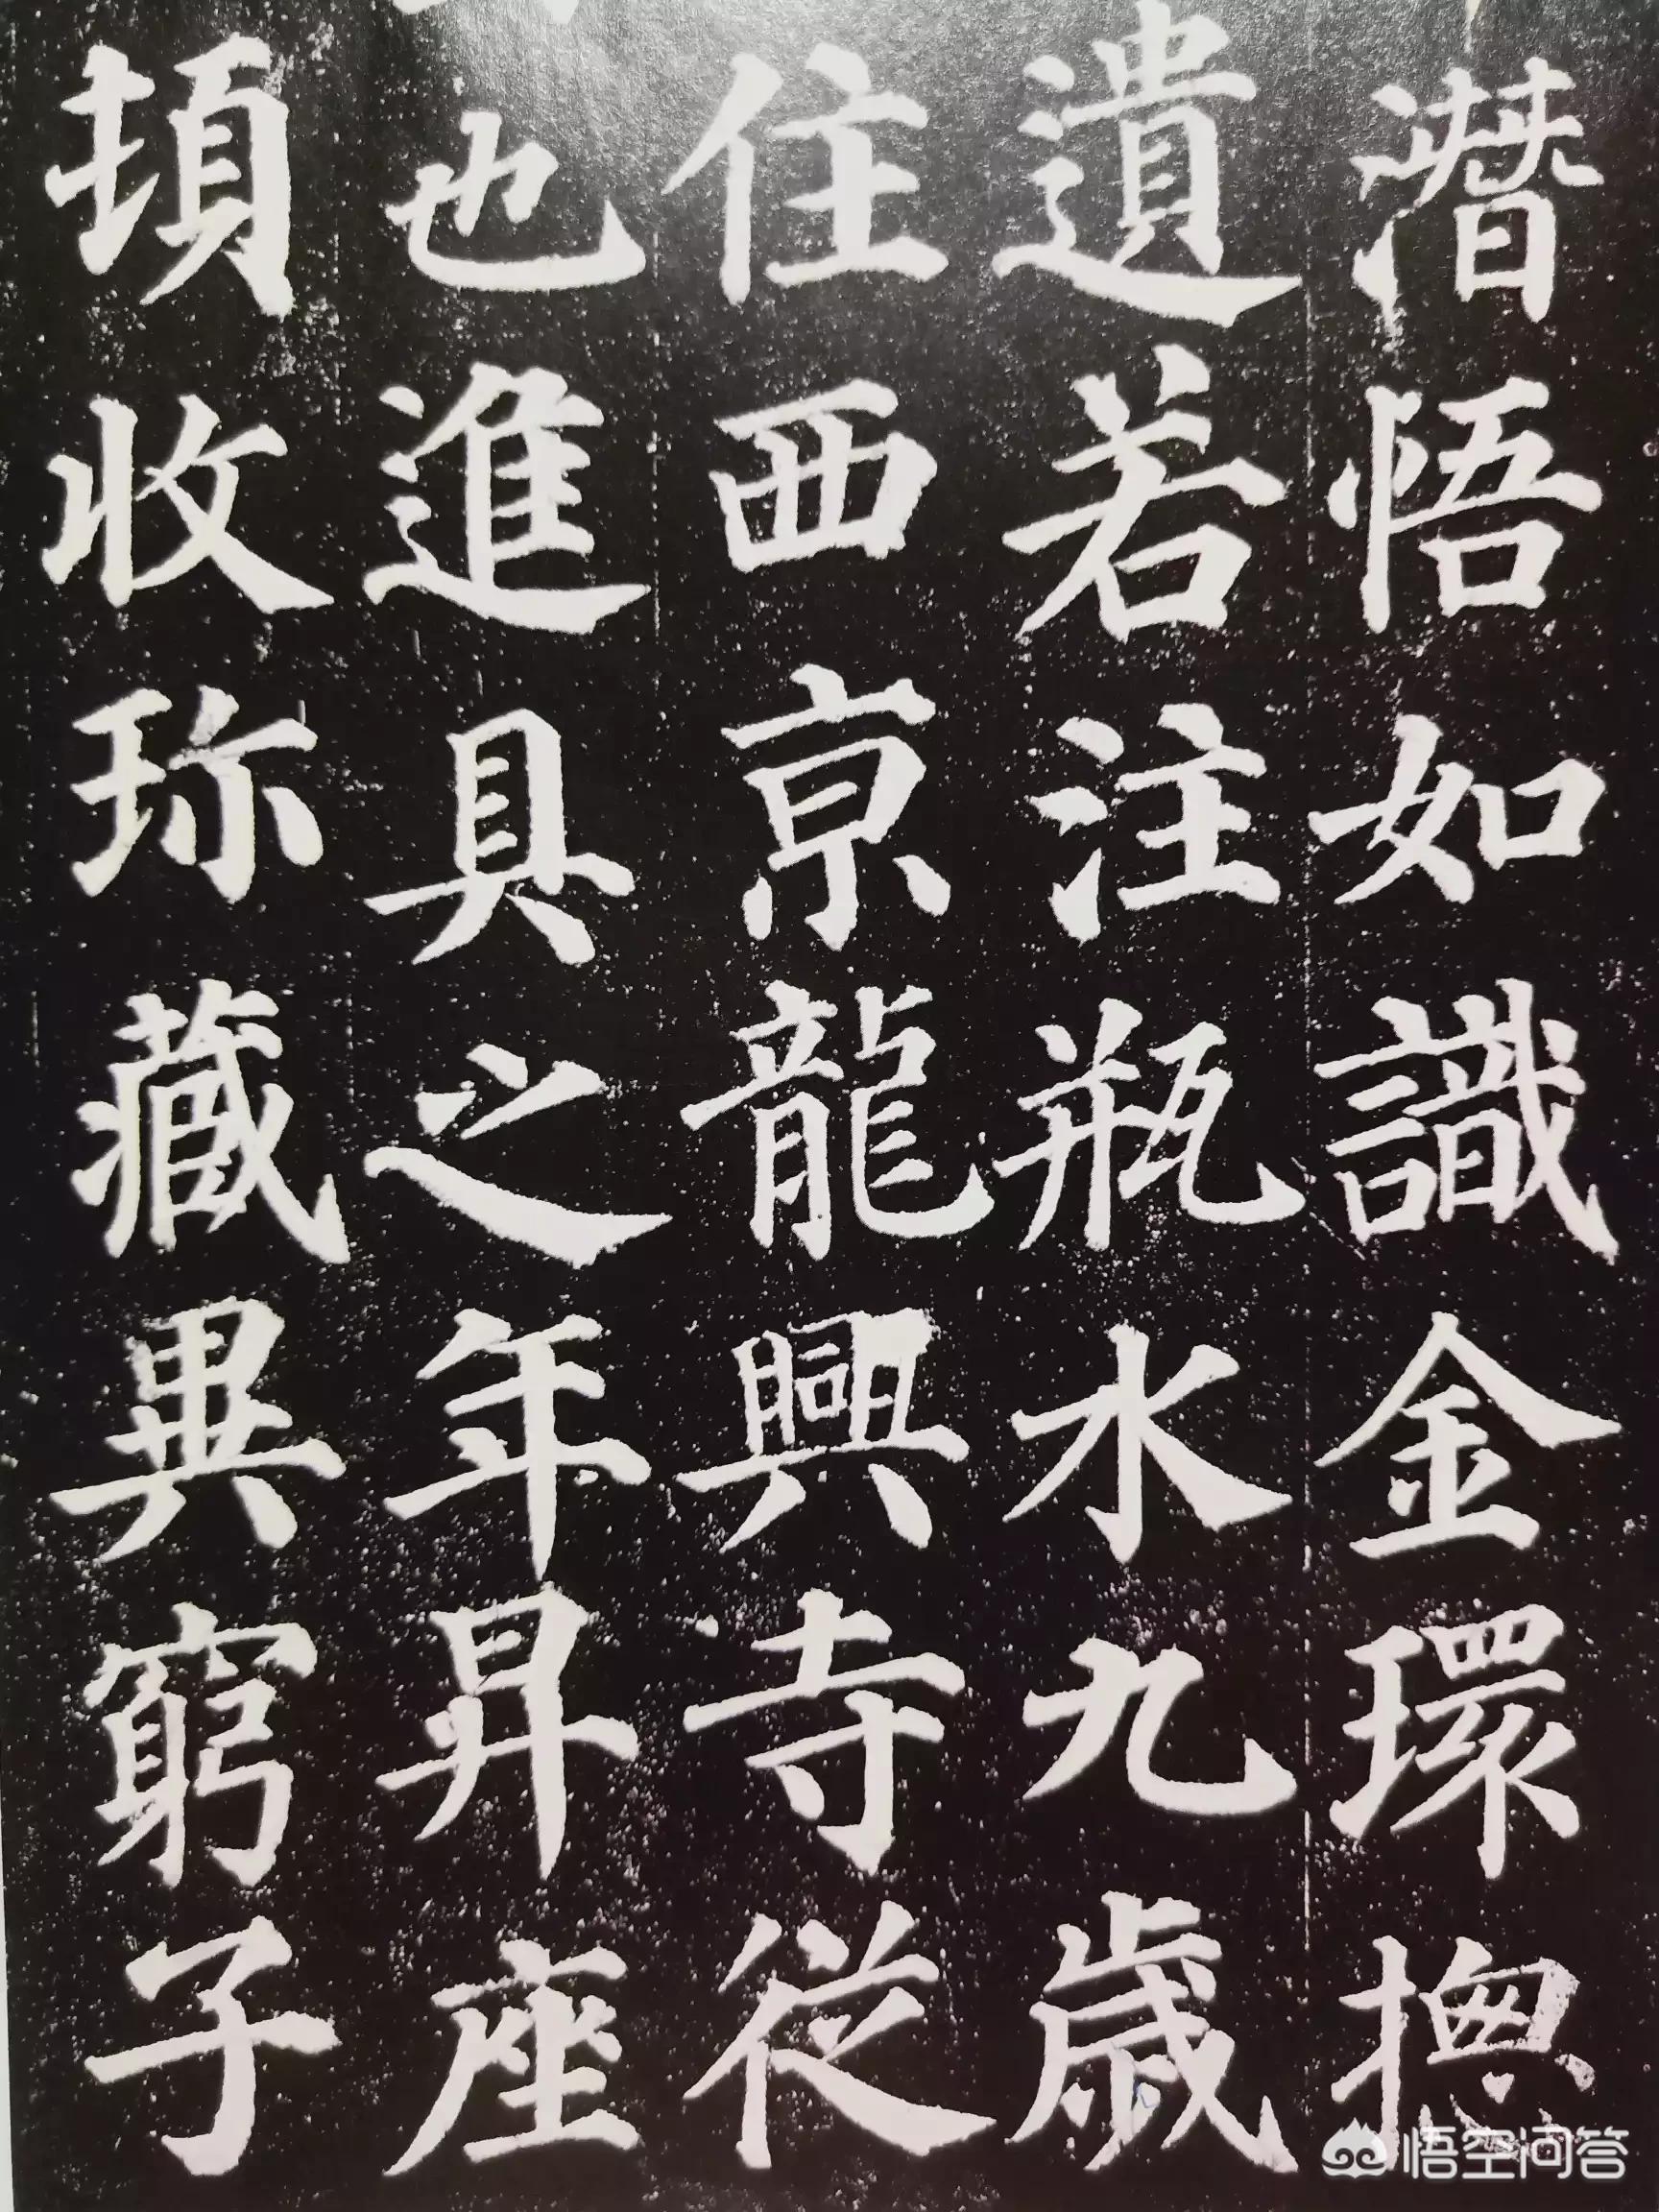 潛悟如識金環揔
遺若注瓶水九歲
住西亰龍興寺從
也進具之年昇座
頓收珎藏異窮子
悟空问答